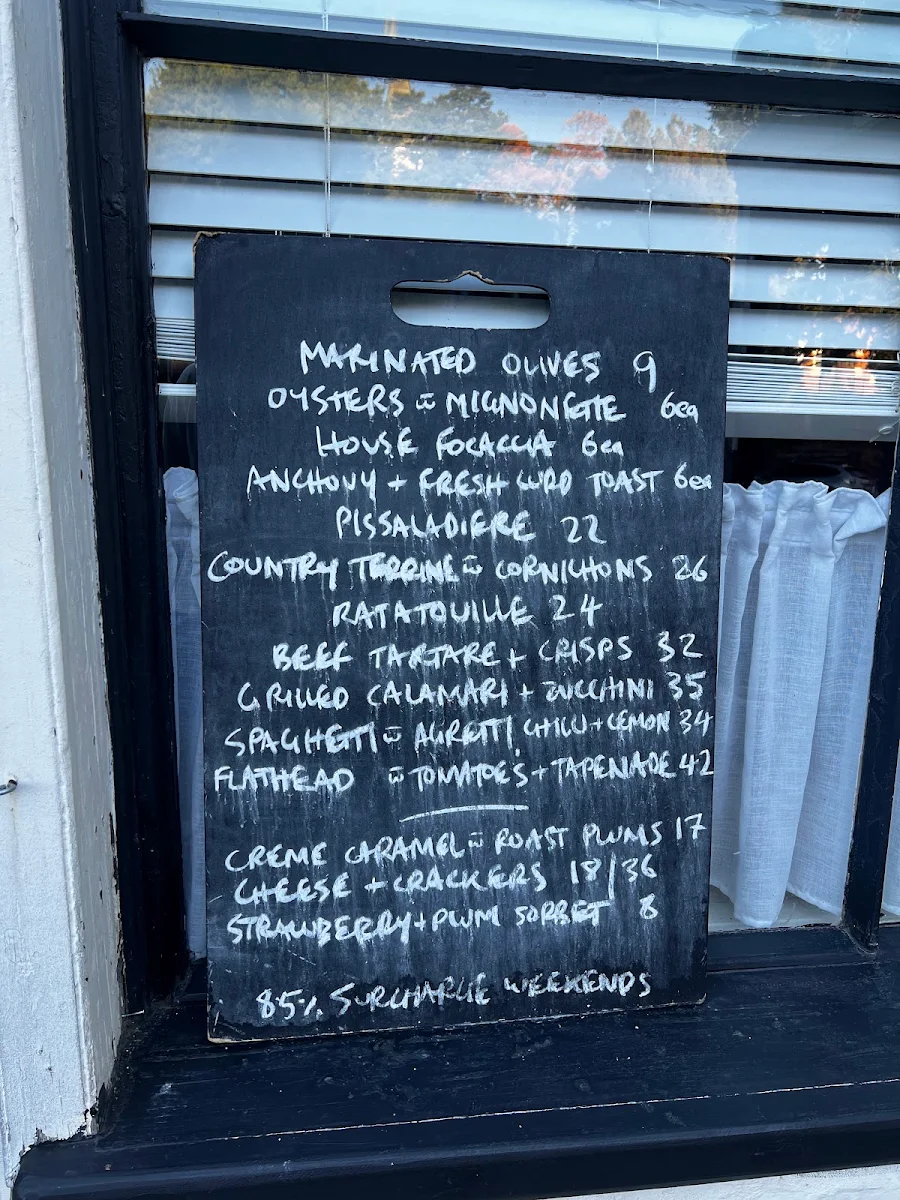 MARINATED OLIVES 9
OYSTERS c̄ MIGNONETTE 6ea
HOUSE FOCACCIA 6ea
ANCHOVY + FRESH CURD TOAST 6ea
PISSALADIERE 22
COUNTRY TERRINE c̄ CORNICHONS 26
RATATOUILLE 24
BEEF TARTARE + CRISPS 32
GRILLED CALAMARI + ZUCCHINI 35
SPAGHETTI c̄ AGRETTI, CHILLI + LEMON 34
FLATHEAD c̄ TOMATOES + TAPENADE 42
CREME CARAMEL c̄ ROAST PLUMS 17
CHEESE + CRACKERS 18/36
STRAWBERRY + PLUM SORBET 8
85% SURCHARGE WEEKENDS